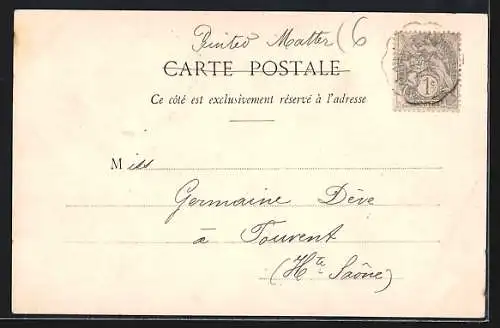 Printed Matter (6
CARTE POSTALE
Ce côté est exclusivement réservé à l'adresse
Miss
Germaine Dève
à Touvent
(Hte Saône)
1c